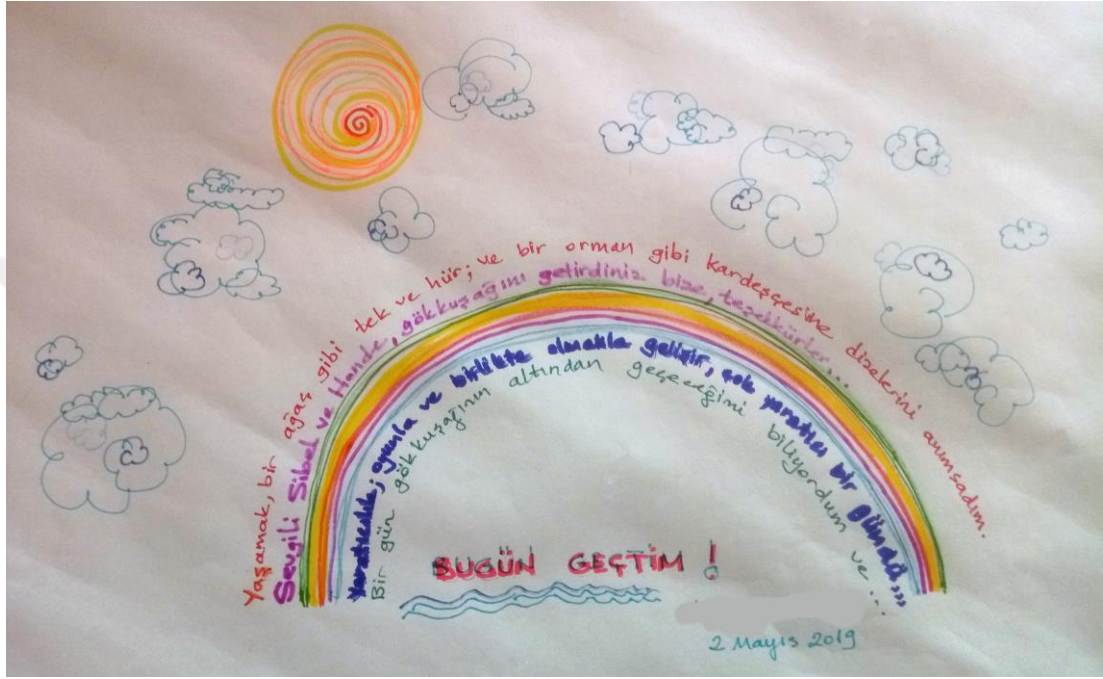 Yaşamak, bir ağaç gibi tek ve hür; ve bir orman gibi kardeşçesine dizelerini anımsadım.
Sevgili Sibel ve Hande, gökkuşağını getirdiniz bize, teşekkürler...
Yaratıcılık; oyunla ve birlikte olmakla gelişir, çok yaratıcı bir gündü,,,
Bir gün gökkuşağının altından geçeceğimi biliyordum ve...
BUGÜN GEÇTİM !
2 Mayıs 2019